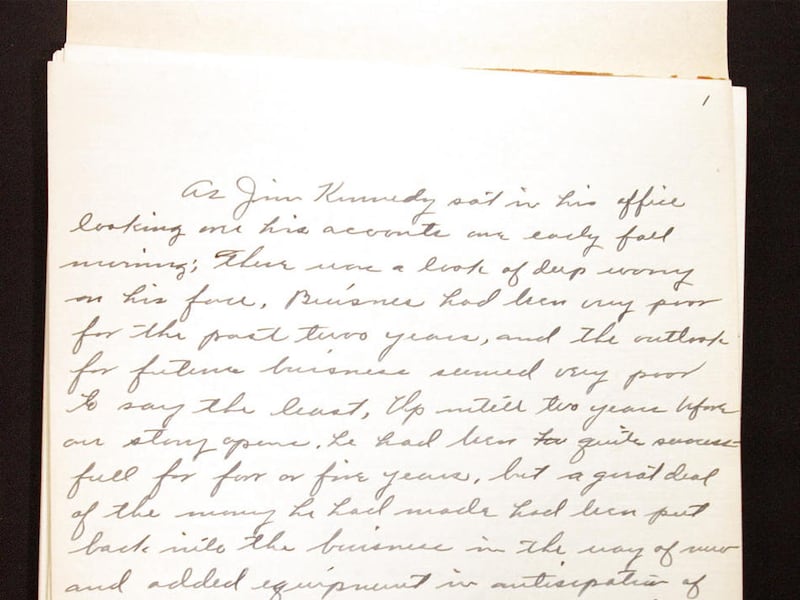 1
As Jim Kennedy sat in his office
looking over his accounts one early fall
morning; There was a look of deep worry
on his face. Buisness had been very poor
for the past two years, and the outlook
for future buisness seemed very poor
to say the least. Up untill two years before
our story opens. he had been quite success-
full for four or five years, but a great deal
of the money he had made had been put
back into the buisness in the way of new
and added equipment in antisipation of